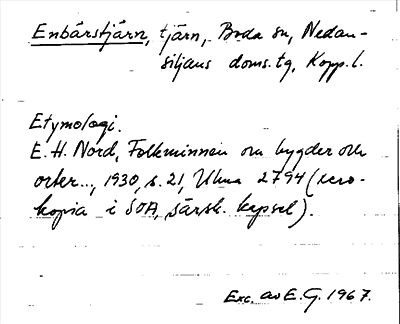 Enbärstjärn, tjärn, Boda sn, Nedan-
siljans doms.tg, Kopp.l.
Etymologi.
E.H. Nord, Folkminnen om bygder och
orter.., 1930, s. 21, ULMA 2794 (xero-
kopia i SOA, särsk. kapsel).
Exc. av E.G. 1967.